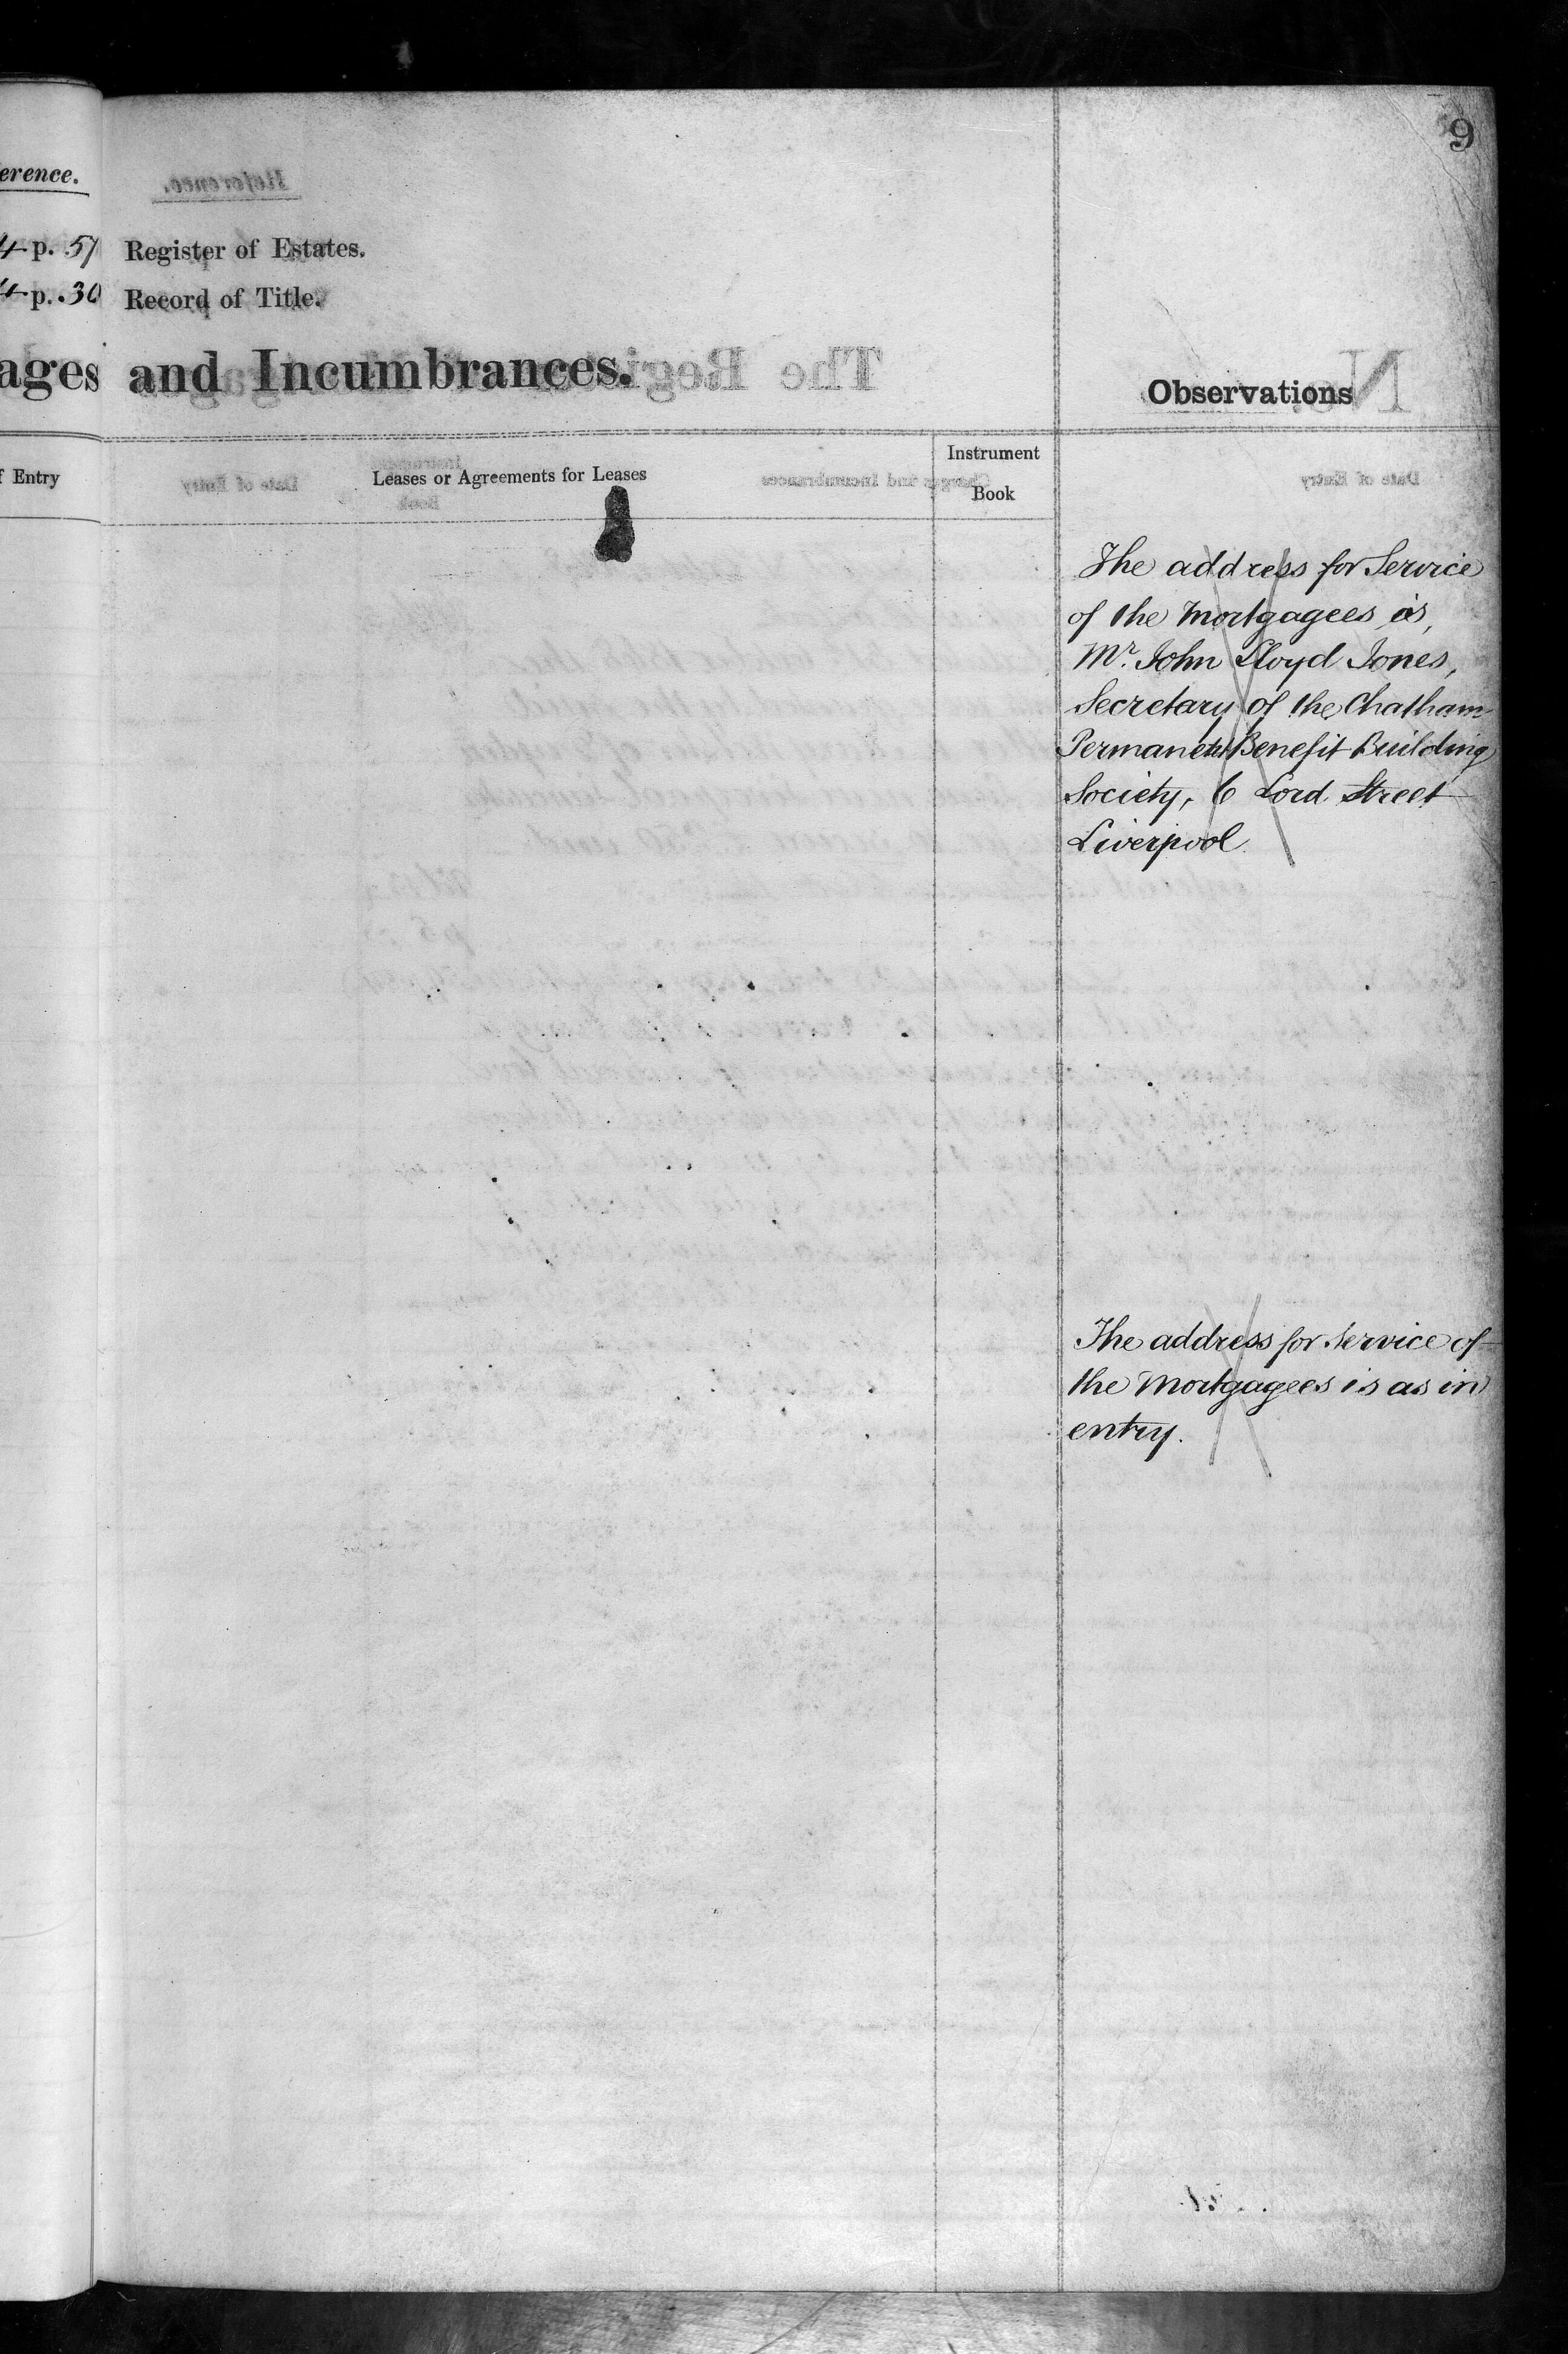 9
erence.
4 p. 57 Register of Estates.
4 p. 30 Record of Title.
ages and Incumbrances.
Observations
f Entry
Leases or Agreements for Leases
Instrument
Book
The address for Service
of the Mortgagees is,
Mr. John Lloyd Jones,
Secretary of the Chatham
Permanent Benefit Building
Society, 6 Lord Street
Liverpool.
The address for Service of
the Mortgagees is as in
entry.